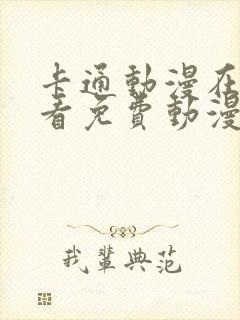 卡通動漫在
看免費動漫
我輩典范